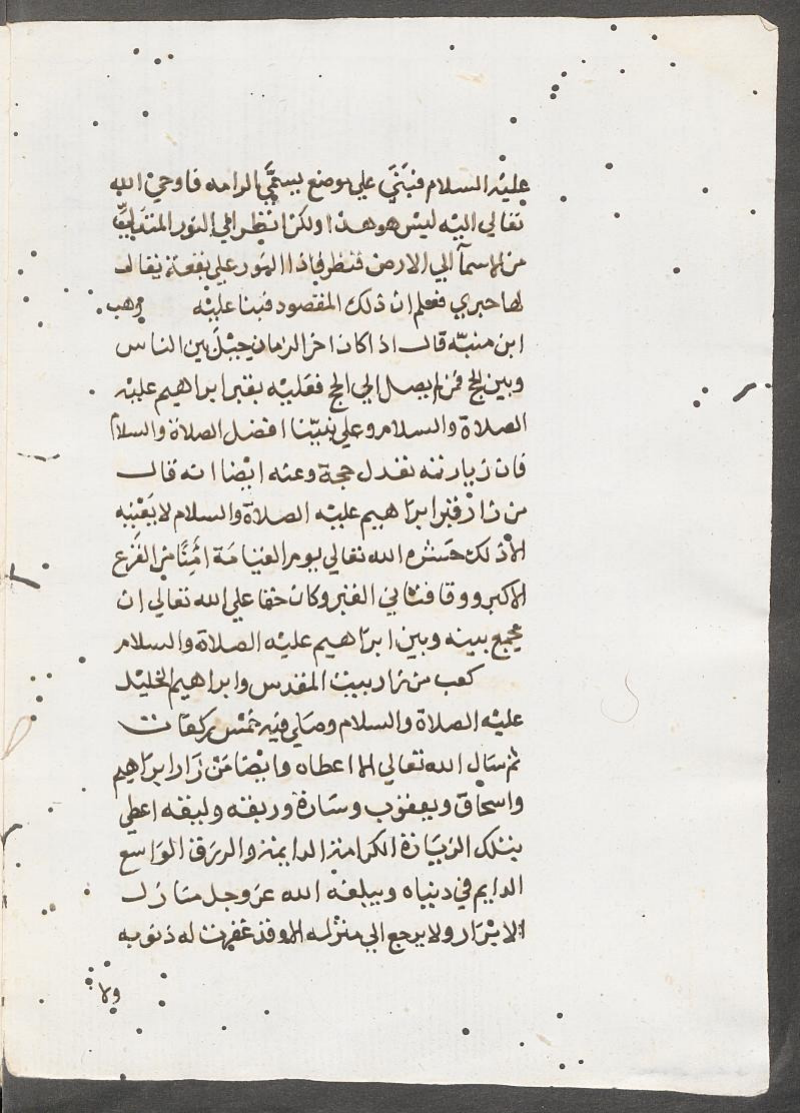 عليه السلام فبني علي موضع يسمي الرامه فاوحي الله
تعالي اليه ليس هو هذا ولكن انظر الي النور المتدلي
من السمآ الي الارض فنظر فاذا النور علي بقعة يقال
لها حبري فعلم ان ذلك المقصود فبنا عليه وهب
ابن منبّه قال اذا كان اخر الزمان حيل بين الناس
وبين الحج فمن لم يصل الي الحج فعليه بقبر ابراهيم عليه
الصلاة والسلام وعلي نبيّنا افضل الصلاة والسلام
فان زيارته تعدل حجة وعنه ايضا انه قال
من زار قبر ابراهيم عليه الصلاة والسلام لا يعنيه
الا ذلك حشره الله تعالي يوم القيامة امِنًا من الفَزَع
الاكبر ووقا فتاني القبر وكان حقا علي الله تعالي ان
يجمع بينه وبين ابراهيم عليه الصلاة والسلام
كعب من زار بيت المقدس وابراهيم الخليل
عليه الصلاة والسلام وصلي فيه خمس ركعات
ثم سال الله تعالي الا اعطاه وايضا من زار ابراهيم
واسحاق ويعقوب وسارة وربقه وليقه اعطي
بتلك الزيارة الكرامة الدايمة والرزق الواسع
الدايم في دنياه ويبلغه الله عز وجل منازل
الابرار ولا يرجع الي منزله الا وقد غفرت له ذنوبه
ولا